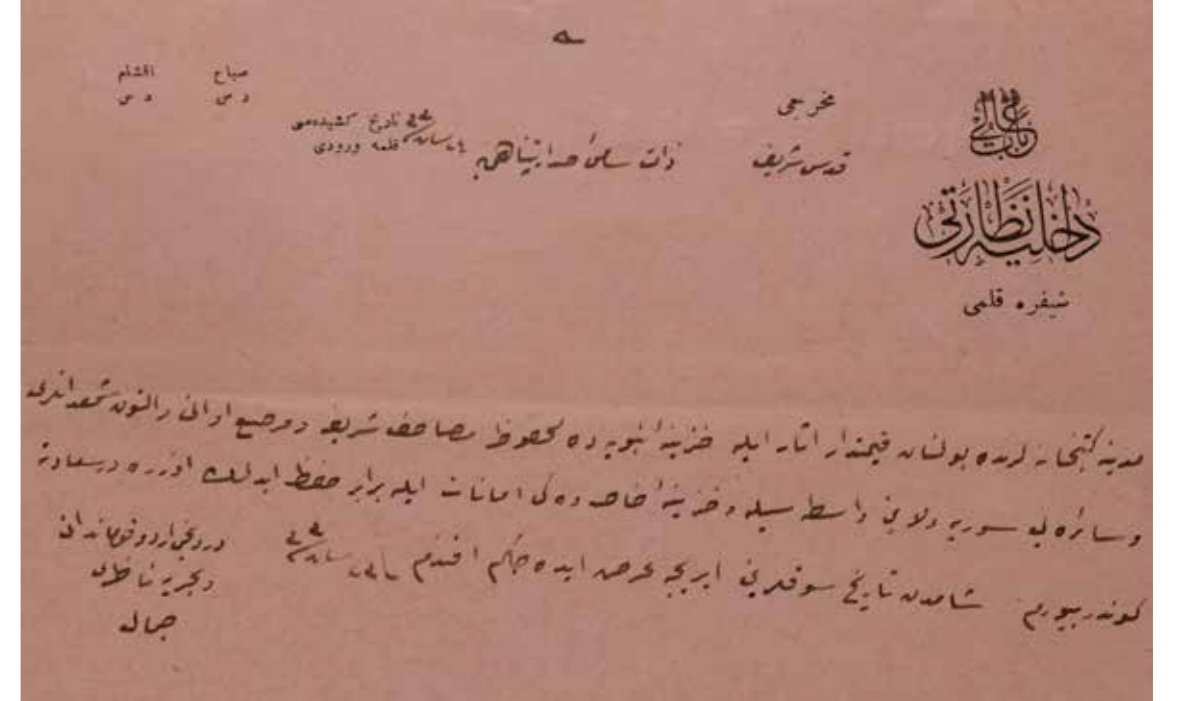 باب عالی
داخلیه نظارتی
شیفره قلمی
مخرجی
قدس شریف
ذات سامئ صدارتپناهی یه
صباح اقشام
د س د س
تاریخ کشیده سی
قلمه ورودی
مدینه کتبخانه لرنده بولنان قیمتدار اثار ایله خزینهٔ نبویه ده محفوظ مصاحف شریفه و مرصع اوانی و التون شمعدانلری
وسائره یی سوریه ولایتی واسطه سیله و خزینهٔ خاصه ده کی امانات ایله برابر حفظ ایدلمك اوزره درسعادته
کوندرییورم شامدن تاریخ سوقلرینی ایریجه عرض ایده جکم افندم
دردنجی اردو قوماندانی
و بحریه ناظری
جمال